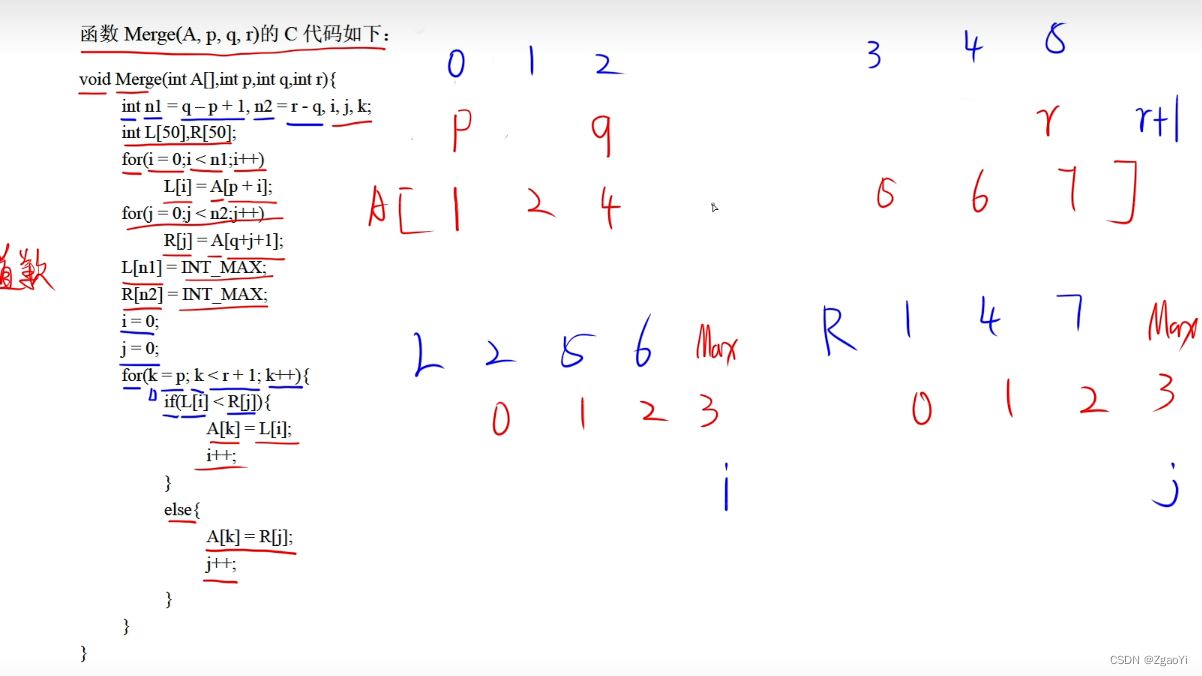 函数 Merge(A, p, q, r)的 C 代码如下：
void Merge(int A[],int p,int q,int r){
int n1 = q – p + 1, n2 = r - q, i, j, k;
int L[50],R[50];
for(i = 0;i < n1;i++)
L[i] = A[p + i];
for(j = 0;j < n2;j++)
R[j] = A[q+j+1];
L[n1] = INT_MAX;
R[n2] = INT_MAX;
i = 0;
j = 0;
for(k = p; k < r + 1; k++){
if(L[i] < R[j]){
A[k] = L[i];
i++;
}
else{
A[k] = R[j];
j++;
}
}
}
0 1 2 3 4 5
p q r r+1
A[ 1 2 4 5 6 7 ]
L 2 5 6 Max R 1 4 7 Max
0 1 2 3 0 1 2 3
i j
数
CSDN @ZgaoYi